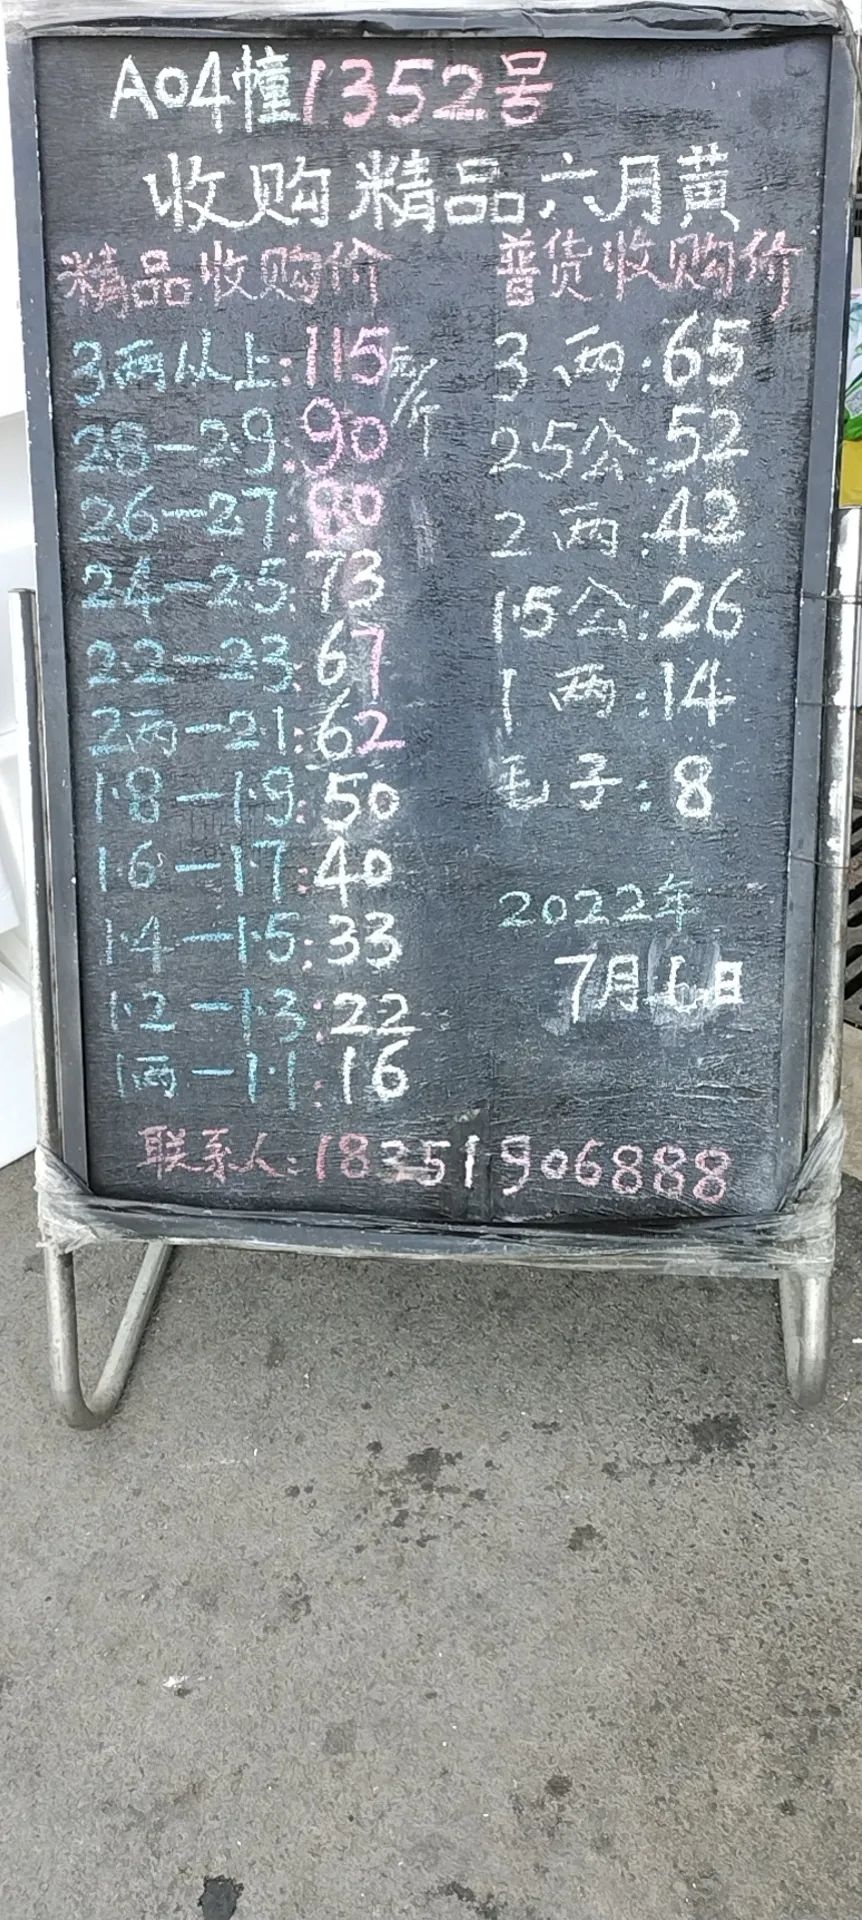 A04幢1352号
收购精品六月黄
精品收购价
3两从上:115元/斤
28-29:90
26-27:80
2.4-2.5:73
2.2-2.3:67
2两-2.1:62
1.8-1.9:50
1.6-1.7:40
1.4-1.5:33
1.2-1.3:22
1两-1.1:16
普货收购价
3两:65
25公:52
2两:42
1.5公:26
1两:14
毛子:8
2022年
7月6日
联系人:18351906888